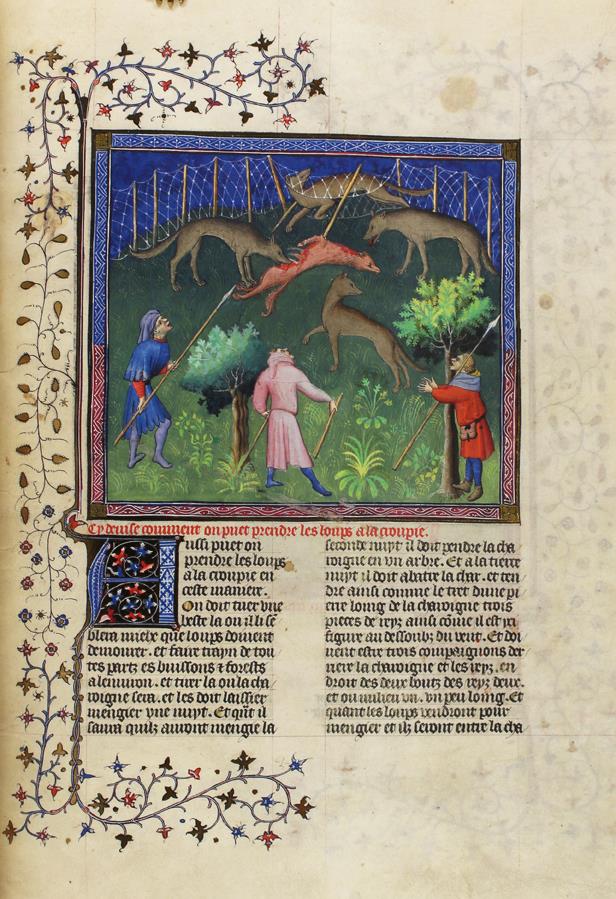 Cy deuise comment on puet prendre les loups a la croupie.
Aussi puet on
prendre les loups
a la croupie en
ceste maniere.
On doit tuer vne
beste la on il li se
blera mielx que loups doiuent
demourer. et faire trayn de tou
tes partz es buissons & forestz
alenuiron. et tirer la ou la cha
roigne sera. et les doit laissier
mengier vne nuyt. Et qnt il
saura quilz auront mengie la
seconde nuyt il doit pendre la cha
roigne en vn arbre. Et a la tierce
nuyt il doit abatre la char. et ten
dre ainsi comme le tret dune pi
erre loing de la charoigne trois
pieces de reyz ainsi come il est yci
figure au dessoubz du vent. Et doi
uent estre trois compaignons der
riere la charoigne et les reyz. en
droit des deux boutz des reyz deux.
et ou milieu vn. vn peu loing. Et
quant les loups vendront pour
mengier et ilz seront entre la cha